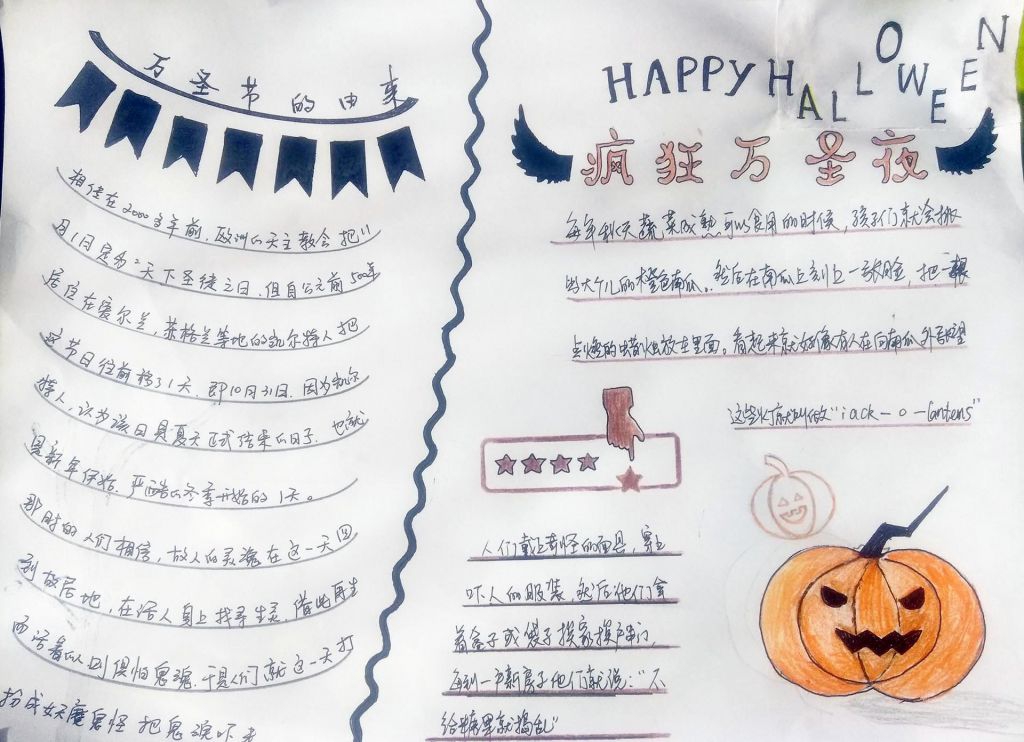 万圣节的由来
相传在2000多年前，欧洲的天主教会把11
月1日定为"天下圣徒之日，但自公元前500年
居住在爱尔兰，苏格兰等地的凯尔特人把
这节日往前移了1天，即10月31日，因为凯尔
特人，认为该日是夏天正式结束的日子，也就
是新年伊始，严酷的冬季开始的1天。
那时的人们相信，故人的灵魂在这一天回
到故居地，在活人身上找寻生灵，借此再生
而活着的人则惧怕鬼魂，于是人们就这一天打
扮成妖魔鬼怪把鬼魂吓走
HAPPY HALLOWEEN
疯狂万圣夜
每年秋天蔬菜成熟可以食用的时候，孩子们就会挑
出大个儿的橙色南瓜。然后在南瓜上刻上一张脸，把一根
点燃的蜡烛放在里面。看起来就好像有人在向南瓜外张望
这些灯就叫做"iack-o-lantens"
人们戴上奇怪的面具，穿上
吓人的服装，然后他们拿
着盒子或袋子挨家挨户串门，
每到一户新房子他们就说："不
给糖果就捣乱"